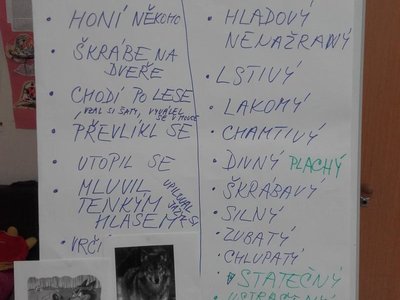 • HONÍ NĚKOHO
• ŠKRÁBE NA
DVEŘE
• CHODÍ PO LESE
VZAL SI ŠÁM, VYVÁLEL
SE V MOUCE
• PŘEVLÍKL SE
• UTOPIL SE
• MLUVIL UPILOVAL
TENKÝM JAZYK SI
HLASEM
• VRČÍ
• HLADOVÝ
NENAŽRANÝ
• LSTIVÝ
• LAKOMÝ
• CHAMTIVÝ
• DIVNÝ PLACHÝ
• ŠKRÁBAVÝ
• SILNÝ
• ZUBATÝ
• CHLUPATÝ
• STATEČNÝ